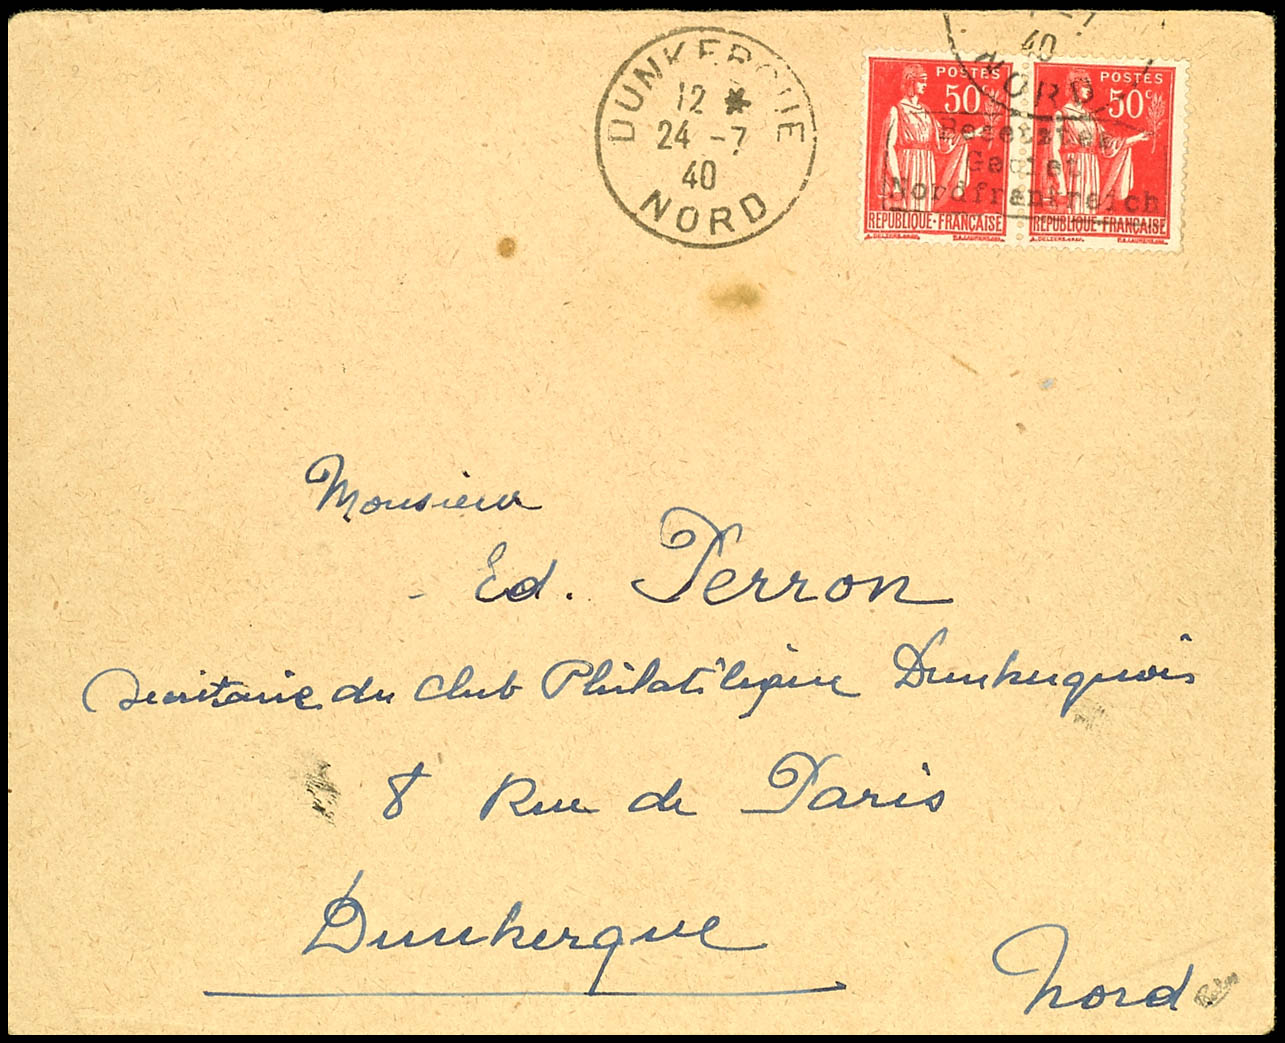 DUNKERQUE
12 *
24 -7
40
NORD
-7
40
NORD
POSTES POSTES
50c 50c
Besetztes
Gebiet
Nordfrankreich
REPUBLIQUE-FRANÇAISE REPUBLIQUE-FRANÇAISE
Monsieur
Ed. Perron
Secrétaire du Club Philatélique Dunkerquois
8 Rue de Paris
Dunkerque
Nord